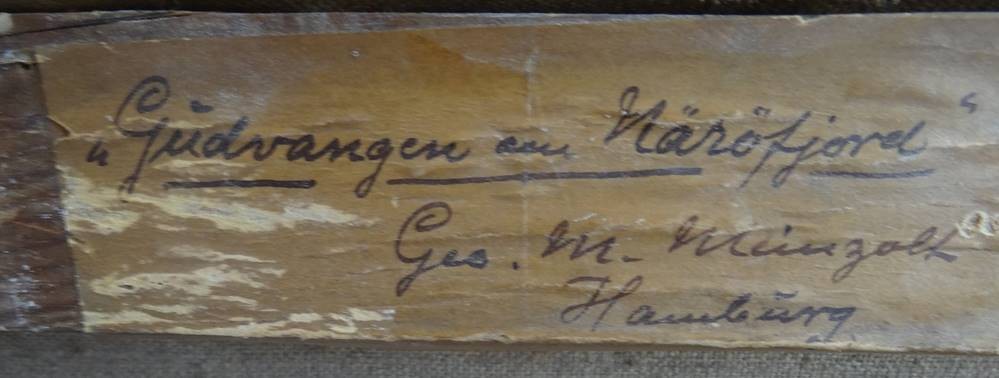 „Gudvangen am Näröfjord“
Geo. M. Meinzolt
Hamburg